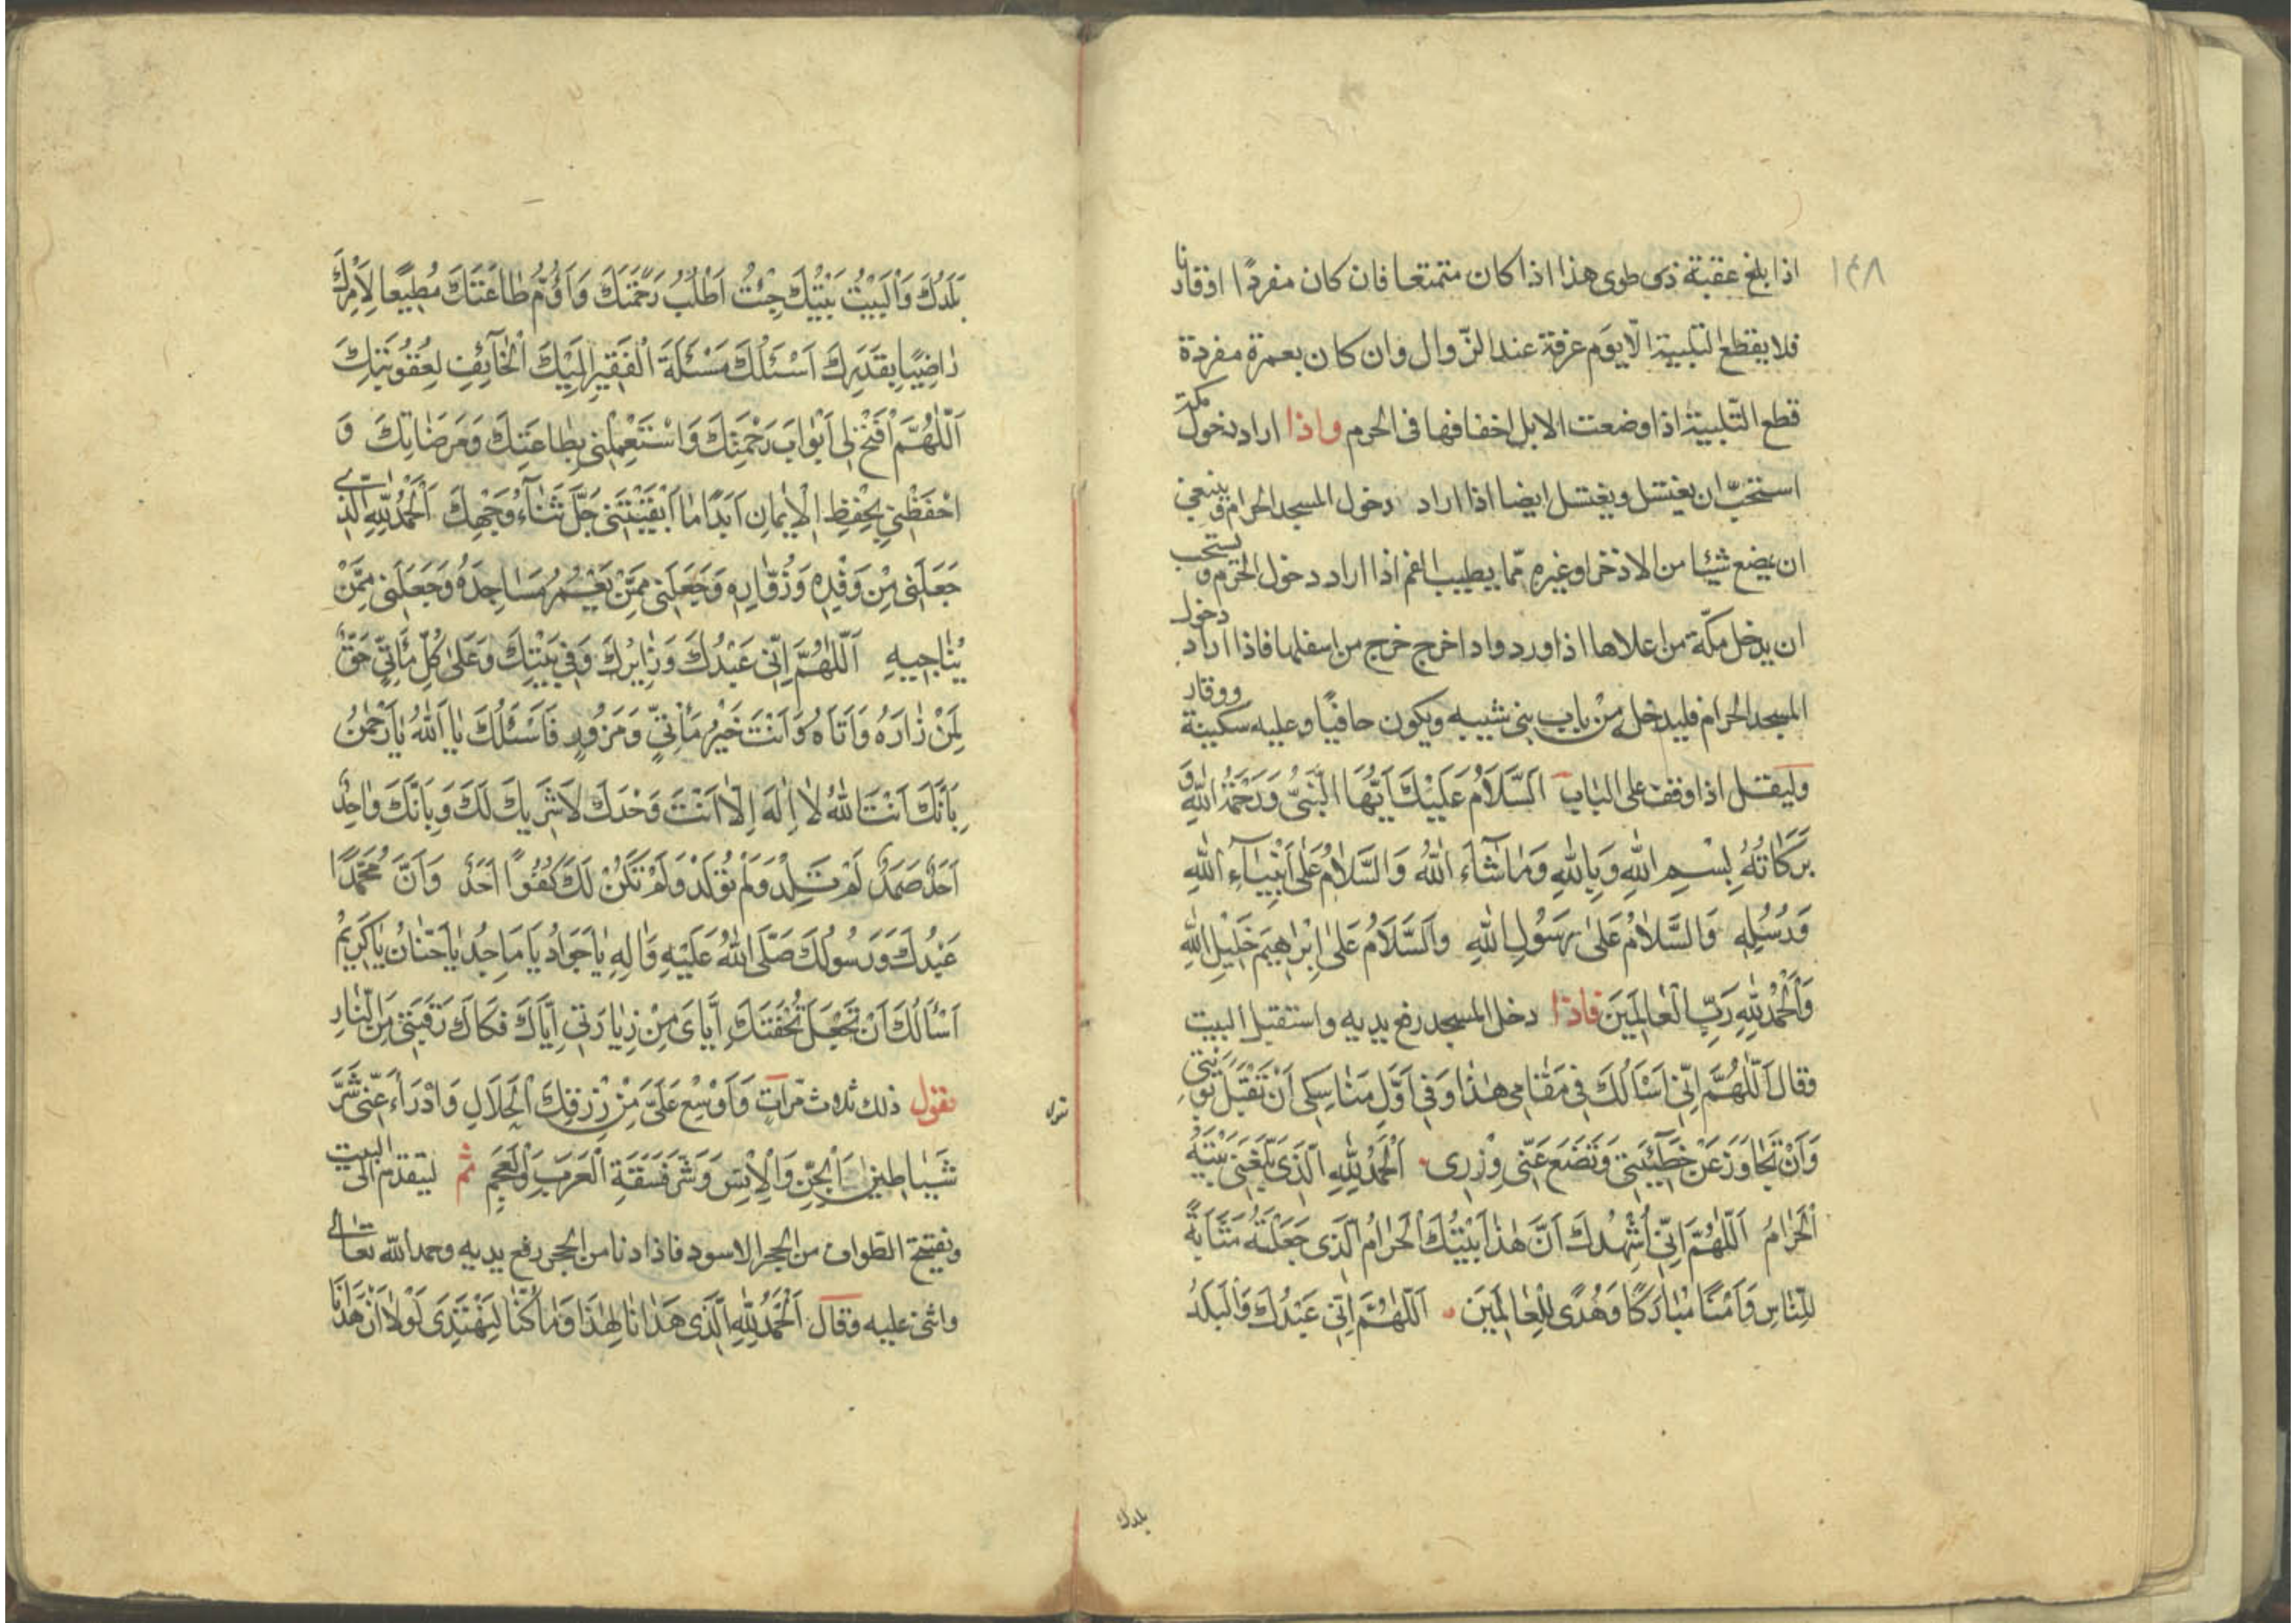 ١٤٨
اذا بلغ عقبة ذى طوى هذا اذا كان متمتعا فان كان مفردًا او قارنا
فلا يقطع التلبية الّا يوم عرفة عند الزّوال وان كان بعمرة مفردة
قطع التّلبية اذا وضعت الابل اخفافها فى الحرم واذا اراد دخول مكة
استحبّ ان يغتسل ويغتسل ايضا اذا اراد دخول المسجد الحرام وينبغى
ان يمضغ شيئا من الاذخر او غيره ممّا يطيب الفم اذا اراد دخول الحرم ويستحب
ان يدخل مكّة من اعلاها اذا ورد واذا خرج خرج من اسفلها فاذا اراد دخول
المسجد الحرام فليدخل من باب بنى شيبه ويكون حافيًا وعليه سكينة ووقار
وليقل اذا وقف على الباب اَلسَّلَامُ عَلَيْكَ اَيُّهَا النَّبِىُّ وَرَحْمَةُ اللّٰهِ وَ
بَرَكَاتُهُ بِسْمِ اللّٰهِ وَبِاللّٰهِ وَمَا شَاءَ اللّٰهُ وَالسَّلَامُ عَلٰى اَنْبِيَاءِ اللّٰهِ
وَرُسُلِهِ وَالسَّلَامُ عَلٰى رَسُوْلِ اللّٰهِ وَالسَّلَامُ عَلٰى اِبْرَاهِيْمَ خَلِيْلِ اللّٰهِ
وَالْحَمْدُ لِلّٰهِ رَبِّ الْعَالَمِيْنَ فاذا دخل المسجد رفع يديه واستقبل البيت
وقال اَللّٰهُمَّ اِنّى اَسْاَلُكَ فِى مَقَامِى هٰذَا وَفِى اَوَّلِ مَنَاسِكِى اَنْ تَقْبَلَ تَوْبَتِى
وَاَنْ تَجَاوَزَ عَنْ خَطِيْئَتِى وَتَضَعَ عَنّى وِزْرِى اَلْحَمْدُ لِلّٰهِ الَّذِى بَلَّغَنِى بَيْتَهُ
الْحَرَامَ اَللّٰهُمَّ اِنّى اُشْهِدُكَ اَنَّ هٰذَا بَيْتُكَ الْحَرَامُ الَّذِى جَعَلْتَهُ مَثَابَةً
لِلنَّاسِ وَاَمْنًا مُبَارَكًا وَهُدًى لِلْعَالَمِيْنَ اَللّٰهُمَّ اِنّى عَبْدُكَ وَالْبَلَدُ
بلدك
بَلَدُكَ وَالْبَيْتُ بَيْتُكَ جِئْتُ اَطْلُبُ رَحْمَتَكَ وَاَؤُمُّ طَاعَتَكَ مُطِيْعًا لِاَمْرِكَ
رَاضِيًا بِقَدَرِكَ اَسْئَلُكَ مَسْئَلَةَ الْفَقِيْرِ اِلَيْكَ الْخَائِفِ لِعُقُوْبَتِكَ
اَللّٰهُمَّ افْتَحْ لِى اَبْوَابَ رَحْمَتِكَ وَاسْتَعْمِلْنِى بِطَاعَتِكَ وَمَرْضَاتِكَ وَ
احْفَظْنِى بِحِفْظِ الْاِيْمَانِ اَبَدًا مَا اَبْقَيْتَنِى جَلَّ ثَنَاءُ وَجْهِكَ اَلْحَمْدُ لِلّٰهِ الَّذِى
جَعَلَنِى مِنْ وَفْدِهِ وَزُوَّارِهِ وَجَعَلَنِى مِمَّنْ يَعْمُرُ مَسَاجِدَهُ وَجَعَلَنِى مِمَّنْ
يُنَاجِيهِ اَللّٰهُمَّ اِنّى عَبْدُكَ وَزَائِرُكَ وَفِى بَيْتِكَ وَعَلٰى كُلِّ مَأْتِىٍّ حَقٌّ
لِمَنْ زَارَهُ وَاَتَاهُ وَاَنْتَ خَيْرُ مَأْتِىٍّ وَمَزُوْرٍ فَاَسْئَلُكَ يَا اَللّٰهُ يَا رَحْمٰنُ
بِاَنَّكَ اَنْتَ اللّٰهُ لَا اِلٰهَ اِلَّا اَنْتَ وَحْدَكَ لَا شَرِيْكَ لَكَ وَبِاَنَّكَ وَاحِدٌ
اَحَدٌ صَمَدٌ لَمْ تَلِدْ وَلَمْ تُوْلَدْ وَلَمْ تَكُنْ لَكَ كُفُوًا اَحَدٌ وَاَنَّ مُحَمَّدًا
عَبْدُكَ وَرَسُوْلُكَ صَلَّى اللّٰهُ عَلَيْهِ وَاٰلِهِ يَا جَوَادُ يَا مَاجِدُ يَا حَنَّانُ يَا كَرِيْمُ
اَسْأَلُكَ اَنْ تَجْعَلَ تُحْفَتَكَ اِيَّاىَ مِنْ زِيَارَتِى اِيَّاكَ فَكَاكَ رَقَبَتِى مِنَ النَّارِ
تقول ذلك ثلاث مرّات وَاَوْسِعْ عَلَىَّ مِنْ رِزْقِكَ الْحَلَالِ وَادْرَأْ عَنّى شَرَّ
شَيَاطِينِ الْجِنِّ وَالْاِنْسِ وَشَرَّ فَسَقَةِ الْعَرَبِ وَالْعَجَمِ ثم ليتقدم الى البيت
ويفتتح الطواف من الحجر الاسود فاذا دنا من الحجر رفع يديه وحمد اللّه تعالى
واثنى عليه وقال اَلْحَمْدُ لِلّٰهِ الَّذِى هَدَانَا لِهٰذَا وَمَا كُنَّا لِنَهْتَدِىَ لَوْلَا اَنْ هَدَانَا